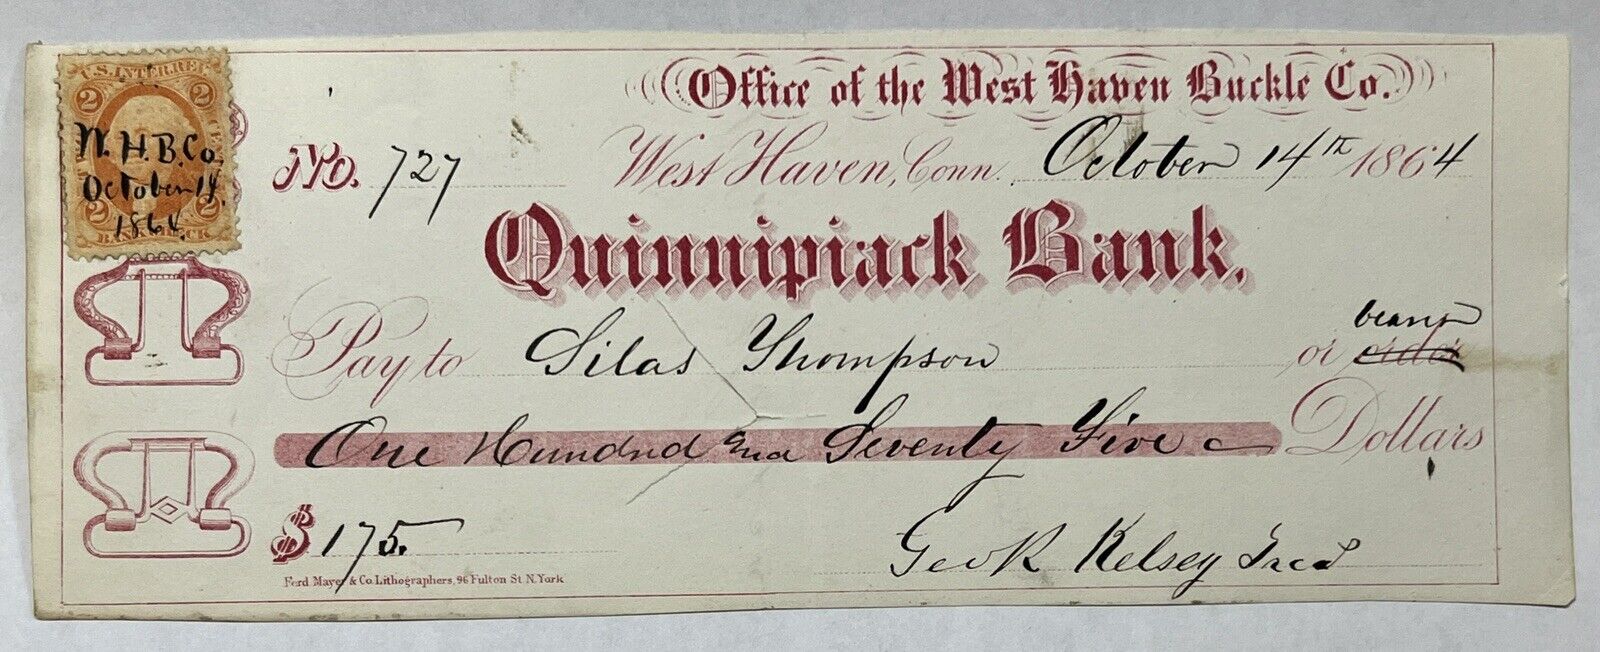 U.S. INTER. REV.
2 2
W. H. B. Co,
October 14.
1864.
2 2
BANK CHECK
Office of the West Haven Buckle Co.
No. 727 West Haven, Conn. October 14th 1864
Quinnipiack Bank.
bearer
Pay to Silas Thompson or order
One Hundred and Seventy Five Dollars
$ 175. Geo R Kelsey
Ferd Mayer & Co. Lithographers, 96 Fulton St. N. York